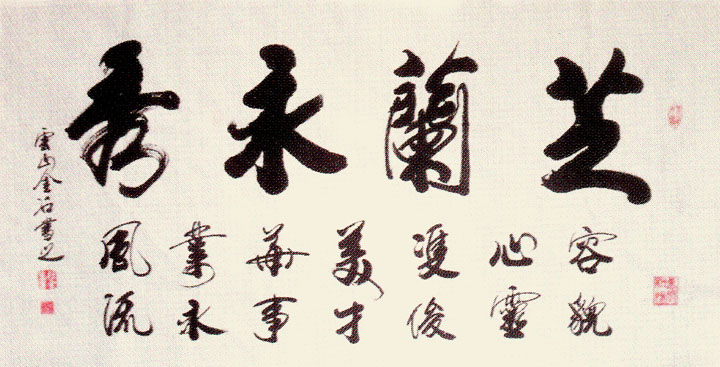 芝蘭永秀
容貌
心靈
雙俊
美才
華事
業永
風流
雲山金石書之